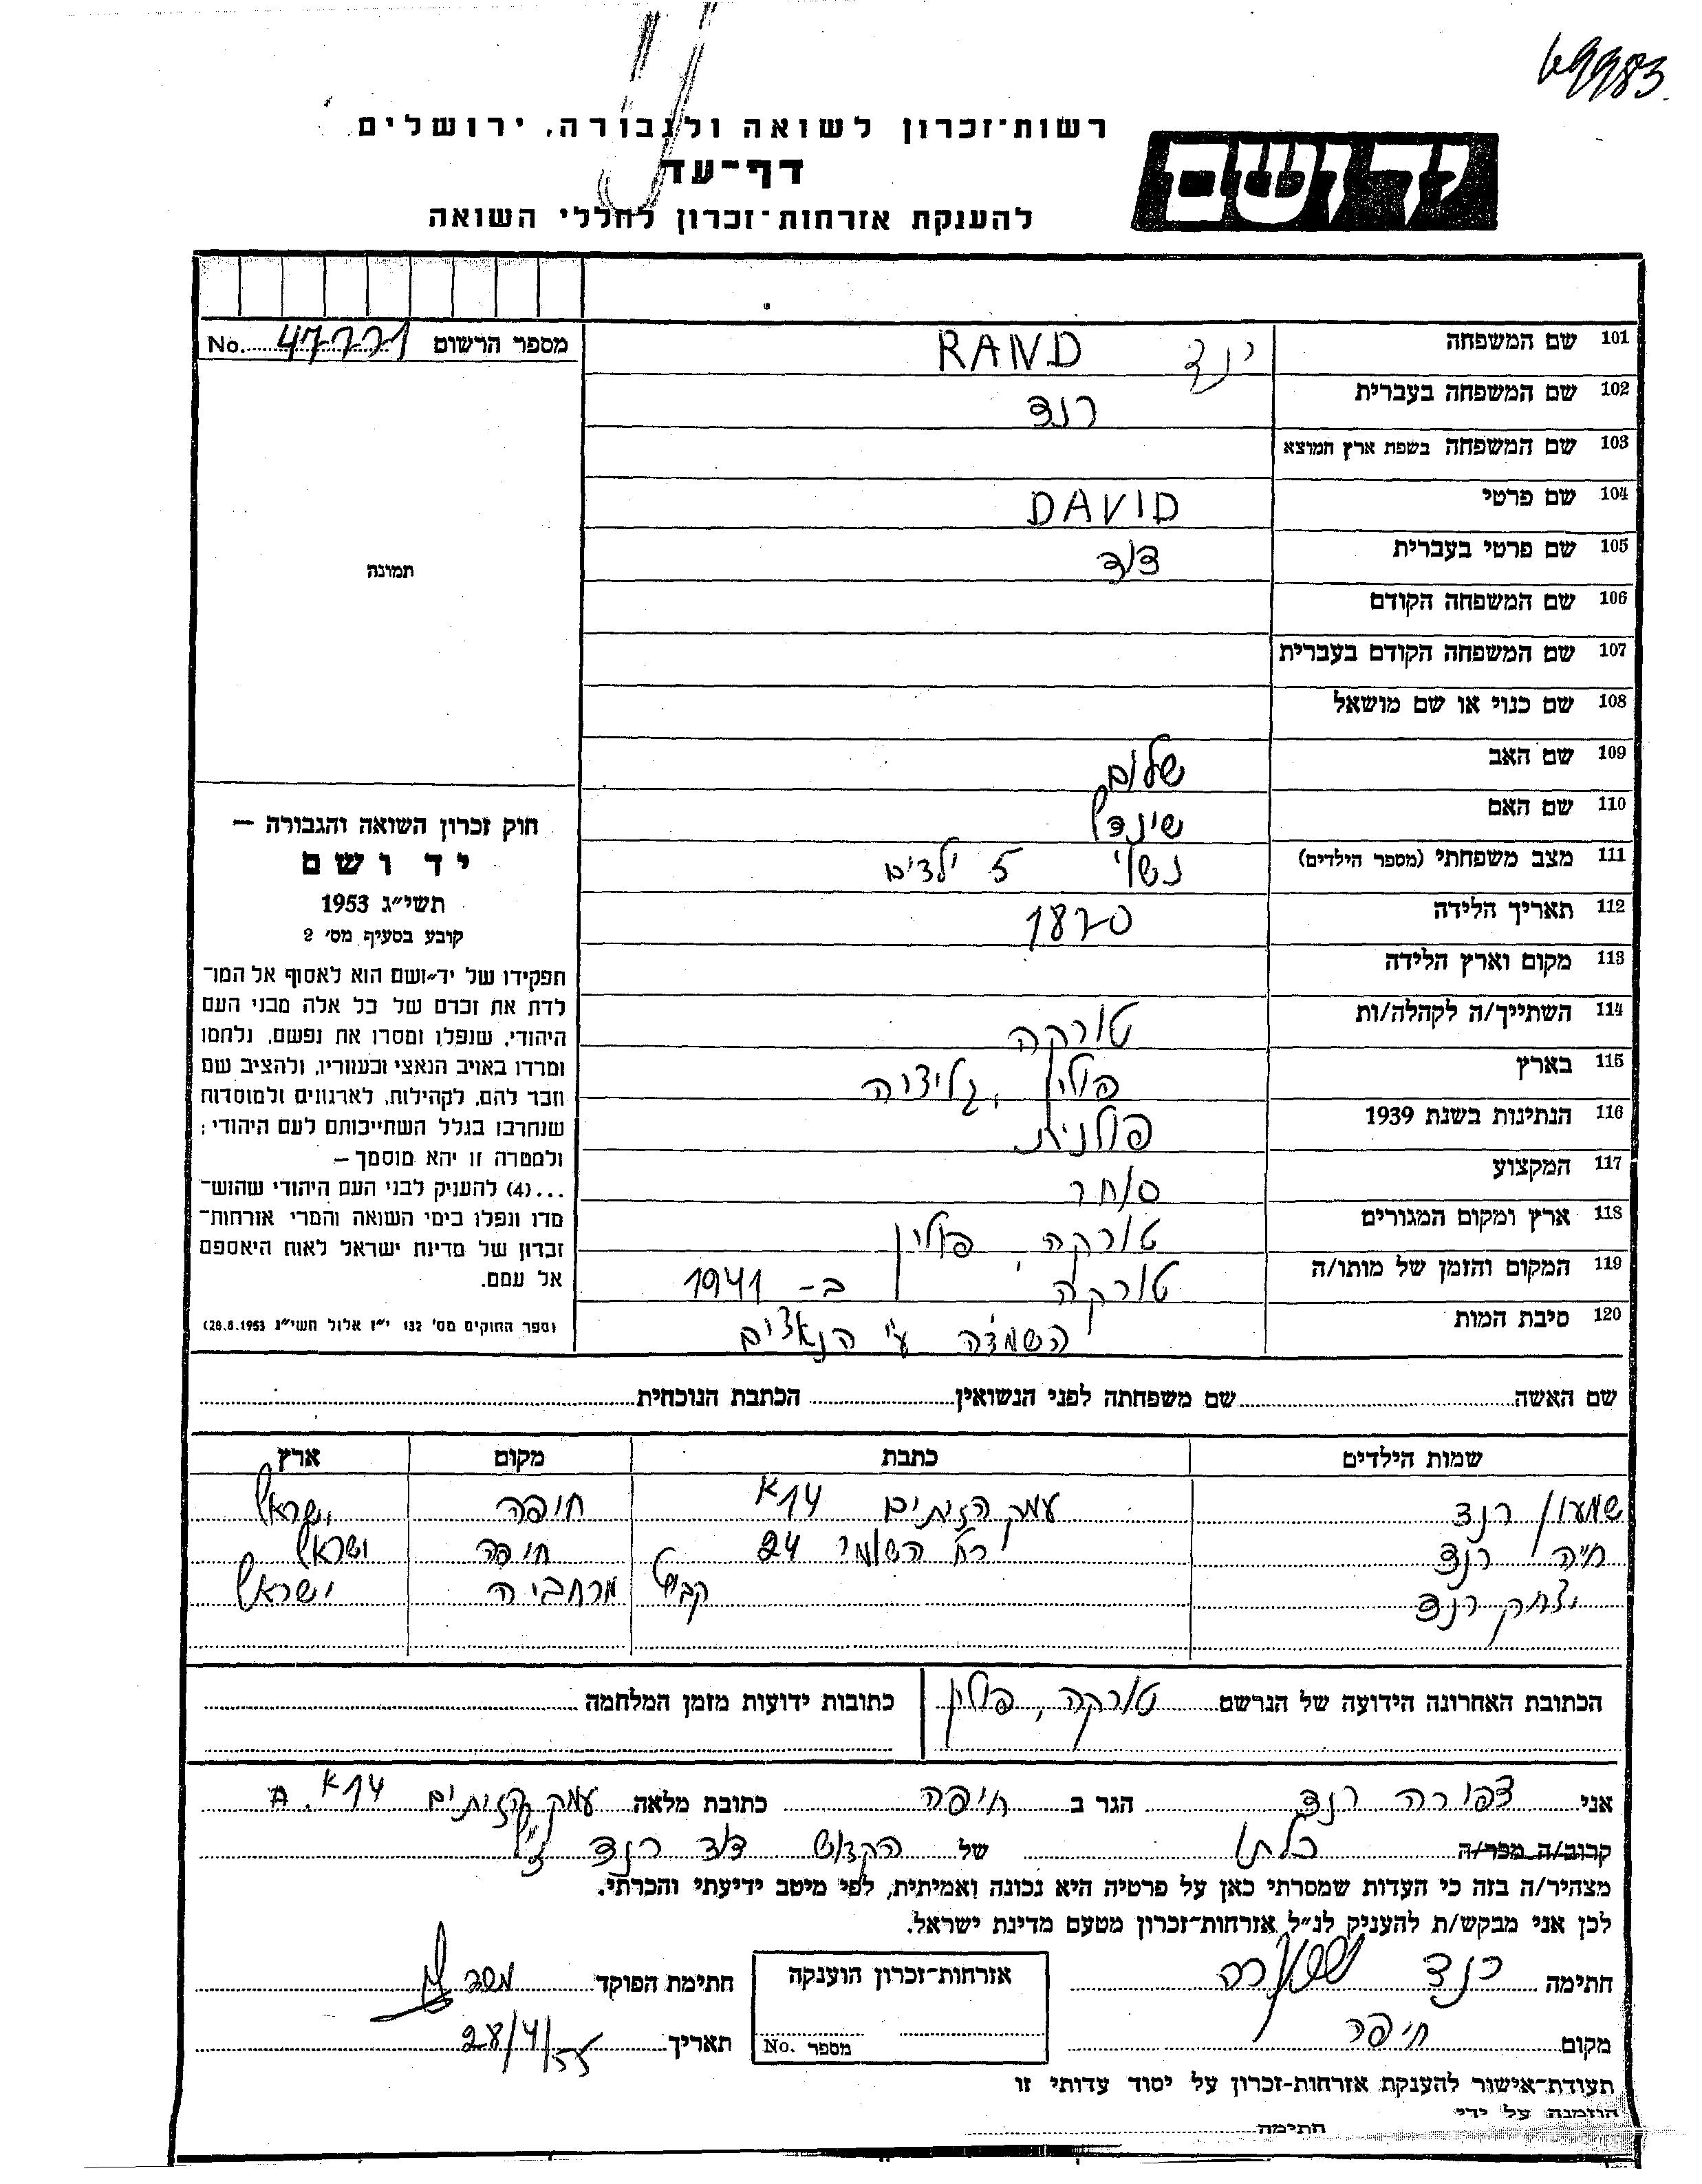 69983
רשות־זכרון לשואה ולגבורה, ירושלים
דף־עד
להענקת אזרחות־זכרון לחללי השואה
יד ושם
מספר הרשום No. 47771
101 שם המשפחה רנד RAND
102 שם המשפחה בעברית רנד
103 שם המשפחה בשפת ארץ המוצא
104 שם פרטי DAVID
105 שם פרטי בעברית דוד
106 שם המשפחה הקודם
107 שם המשפחה הקודם בעברית
108 שם כנוי או שם מושאל
109 שם האב שלום
110 שם האם שינדל
111 מצב משפחתי (מספר הילדים) נשוי 5 ילדים
112 תאריך הלידה 1870
113 מקום וארץ הלידה
114 השתייך/ה לקהלה/ות טורקה
115 בארץ פולין, גליציה
116 הנתינות בשנת 1939 פולנית
117 המקצוע סוחר
118 ארץ ומקום המגורים טורקה, פולין
119 המקום והזמן של מותו/ה טורקה ב- 1941
120 סיבת המות השמדה ע"י הנאצים
תמונה
חוק זכרון השואה והגבורה —
יד ושם
תשי״ג 1953
קובע בסעיף מס׳ 2
תפקידו של יד־ושם הוא לאסוף אל המו־
לדת את זכרם של כל אלה מבני העם
היהודי, שנפלו ומסרו את נפשם, נלחמו
ומרדו באויב הנאצי ובעוזריו, ולהציב שם
וזכר להם, לקהילות, לארגונים ולמוסדות
שנחרבו בגלל השתייכותם לעם היהודי;
ולמטרה זו יהא מוסמך —
...(4) להעניק לבני העם היהודי שהוש־
מדו ונפלו בימי השואה והמרי אזרחות־
זכרון של מדינת ישראל לאות היאספם
אל עמם.
(ספר החוקים מס׳ 132 י״ז אלול תשי״ג 28.8.1953)
שם האשה שם משפחתה לפני הנשואין הכתבת הנוכחית
שמות הילדים כתבת מקום ארץ
שמעון רנד עמק הזיתים 14א חיפה ישראל
חיה רנד רח' השומר 24 חיפה ישראל
יצחק רנד קבוץ מרחביה ישראל
הכתובת האחרונה הידועה של הנרשם טורקה, פולין כתובות ידועות מזמן המלחמה
אני צפורה רנד הגר ב חיפה כתובת מלאה עמק הזיתים 14א .A
קרוב/ה מכר/ה כלתו של הקדוש דוד רנד ז"ל
מצהיר/ה בזה כי העדות שמסרתי כאן על פרטיה היא נכונה ואמיתית, לפי מיטב ידיעתי והכרתי.
לכן אני מבקש/ת להעניק לנ״ל אזרחות־זכרון מטעם מדינת ישראל.
חתימה רנד צפורה אזרחות־זכרון הוענקה חתימת הפוקד
מקום חיפה מספר No. תאריך 28/4/55
תעודת־אישור להענקת אזרחות־זכרון על יסוד עדותי זו
הוזמנה על ידי
חתימה